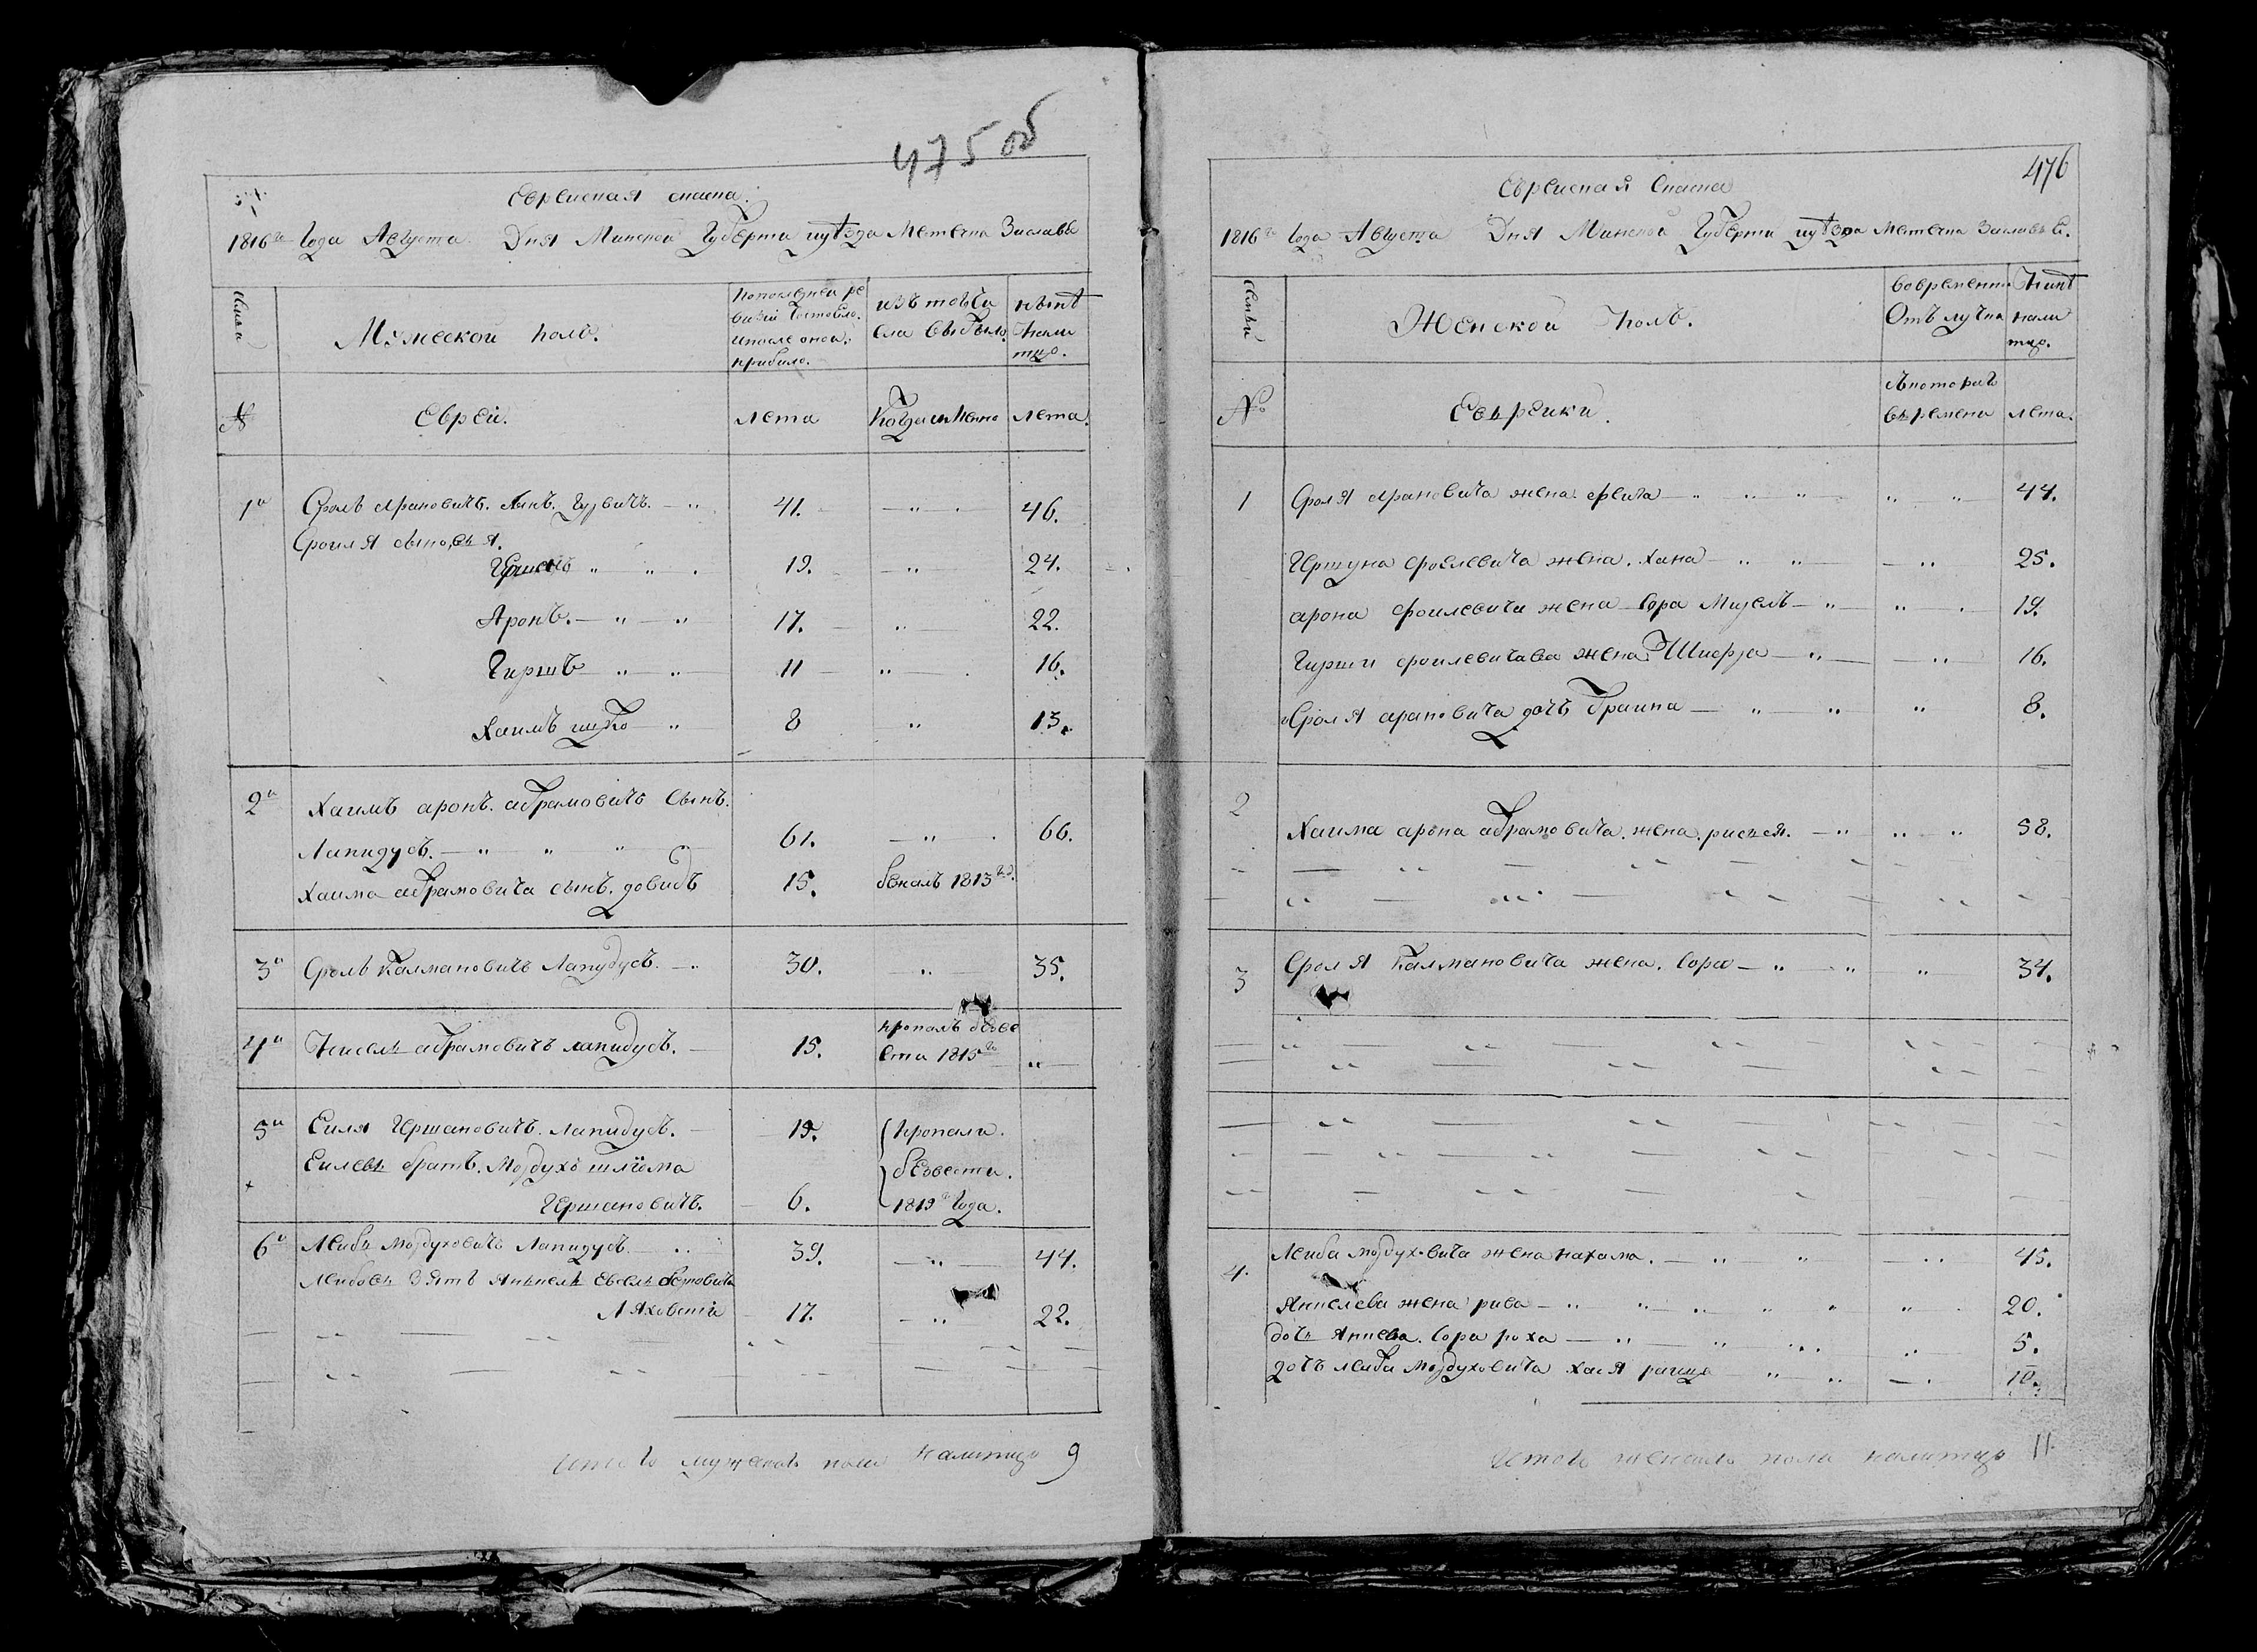 475 об
Еврейская сказка.
1816го Года Августа Дня Минской Губерни иуѣзда Местечка Заславе
Мужеской полъ.
По последней ре
визій Состояло.
ипосле оной.
прибыло.
изъ тогочи
сла выбыло.
нынѣ
нали
тцо.
№
Еврей.
лета
Когда имянно
лета.
1й Сроль Ароновичъ. Сынъ. Гурвичъ. 41. 46.
Сроиля сыновья.
Гершонъ 19. 24.
Аронъ. 17. 22.
Гиршъ 11 16.
Хаимъ 8 13.
2й Хаимъ аронъ. абрамовичъ Сынъ.
Лапидусъ. 61. 66.
Хаима абрамовича сынъ. довидъ 15. бежалъ 1813 го.
3й Сроль Калмановичъ Лапудусъ. 30. 35.
4й абрамовичъ лапидусъ. 15. пропалъ безве
сти 1815го
5й Еиля Гершановичъ. Лапидусъ. 19. Пропали.
Еилевъ братъ. Мордухъ шліома безвести.
Гершановичъ. 6. 1813го Года.
6й Леибъ Мордуховичъ Лапидусъ. 39. 44.
Леибовъ Зять
Ляховскій 17. 22.
Итого мужеска пола налитцо 9
476
Еврейская Сказка
1816го Года Августа Дня Минской Губерни иуѣзда Местечка Заславье.
Женской полъ.
вовременной
Отълучки
Нынѣ
нали
тцо.
№
Евърейки.
съкоторагъ
въремени
лета.
1 Сроля Ароновича жена. 44.
Гершуна сроелевича жена. Хана 25.
арона сроилевича жена Сора 19.
Гирши сроилевичава жена 16.
Сроля ароновича дочь Браина 8.
2 Хаима арона абрамовича. жена. 58.
3 Сроля Калмановича жена. Сора 34.
4. Леиба мордуховича жена нахама. 45.
Янкелева жена рива 20.
дочь Янкева. Сора роха 5.
дочъ леиба Мордуховича хася 10.
Итого женска пола налитцо 11.